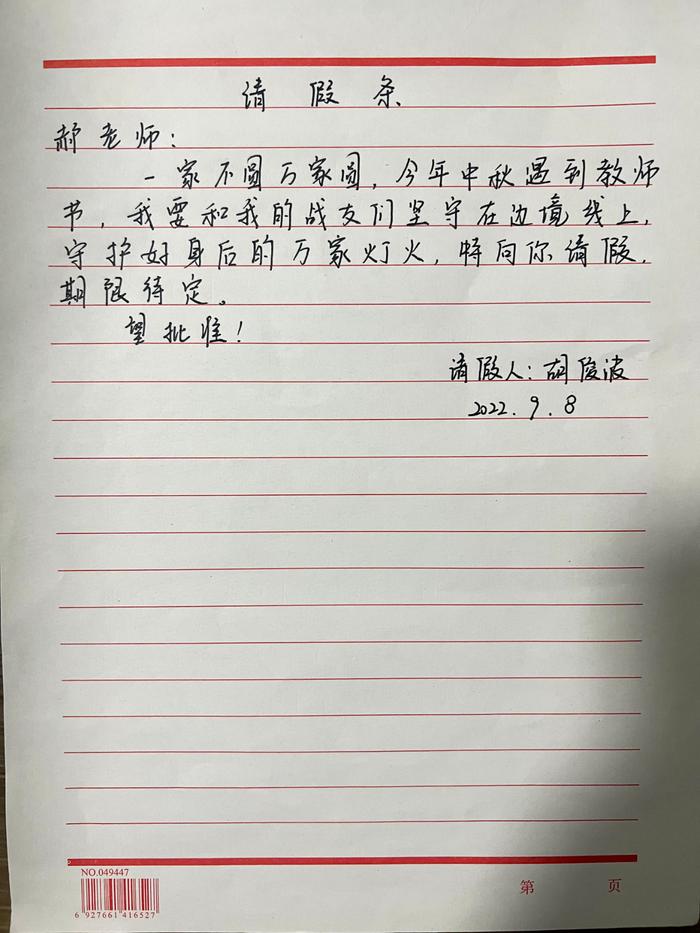 请假条
郝老师：
一家不圆万家圆，今年中秋遇到教师
节，我要和我的战友们坚守在边境线上，
守护好身后的万家灯火，特向你请假，
期限待定。
望批准！
请假人：胡俊波
2022.9.8
NO.049447
6 927661 416527
第 页